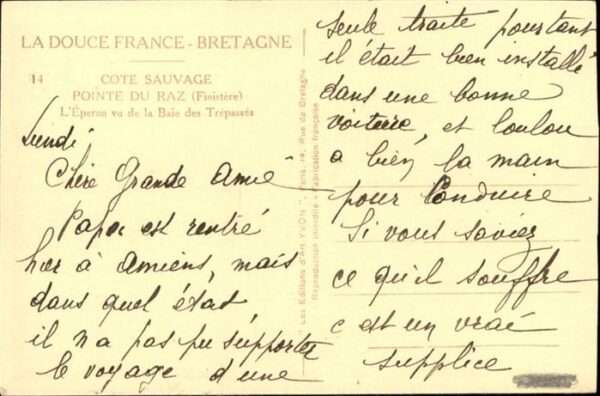 LA DOUCE FRANCE - BRETAGNE
14 COTE SAUVAGE
POINTE DU RAZ (Finistère)
L'Éperon vu de la Baie des Trépassés
Lundi
Chère Grande Amie
Papa est rentré
hier à Amiens, mais
dans quel état
il n a pas pu supporter
le voyage d'une
"Les Éditions d'Art YVON", Paris, 14, Rue de Bretagne
Reproduction interdite - Fabrication française
seule traite pourtant
il était bien installé
dans une bonne
voiture, et loulou
a bien la main
pour Conduire
Si vous saviez
ce qu'il souffre
c est un vrai
supplice